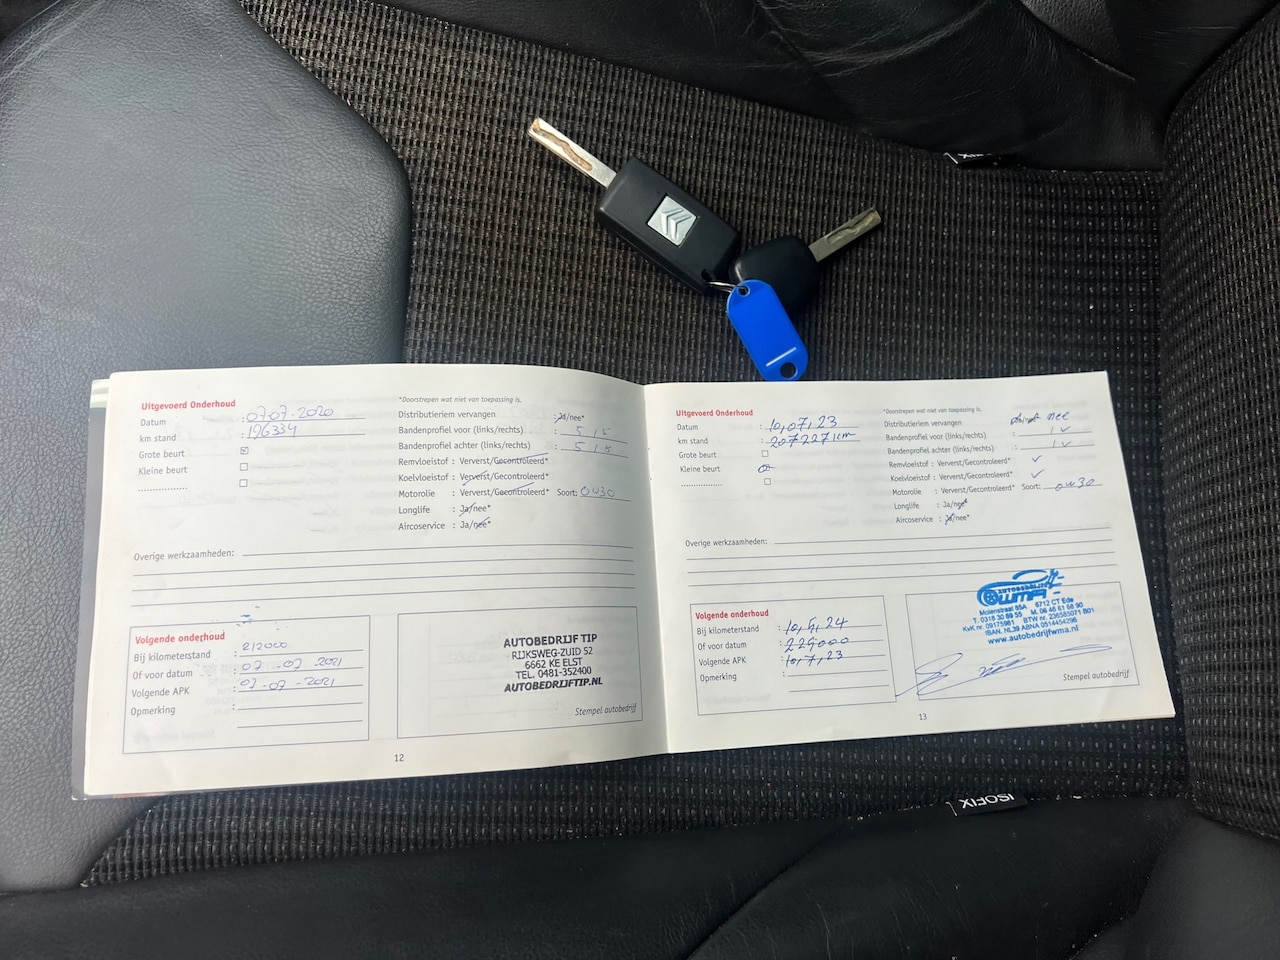 ISOFIX
Uitgevoerd Onderhoud
Datum : 07-07-2020
km stand : 196334
Grote beurt
Kleine beurt
....................
*Doorstrepen wat niet van toepassing is.
Distributieriem vervangen : Ja/nee*
Bandenprofiel voor (links/rechts) : 5 / 5
Bandenprofiel achter (links/rechts) : 5 / 5
Remvloeistof : Ververst/Gecontroleerd*
Koelvloeistof : Ververst/Gecontroleerd*
Motorolie : Ververst/Gecontroleerd* Soort: 0W30
Longlife : Ja/nee*
Aircoservice : Ja/nee*
Overige werkzaamheden:
Volgende onderhoud
Bij kilometerstand : 212000
Of voor datum : 07-07-2021
Volgende APK : 07-07-2021
Opmerking :
AUTOBEDRIJF TIP
RIJKSWEG-ZUID 52
6662 KE ELST
TEL. 0481-352400
AUTOBEDRIJFTIP.NL
Stempel autobedrijf
12
Uitgevoerd Onderhoud
Datum : 10,07,23
km stand : 207227 km
Grote beurt
Kleine beurt
....................
*Doorstrepen wat niet van toepassing is.
Distributieriem vervangen nee
Bandenprofiel voor (links/rechts) :
Bandenprofiel achter (links/rechts) :
Remvloeistof : Ververst/Gecontroleerd*
Koelvloeistof : Ververst/Gecontroleerd*
Motorolie : Ververst/Gecontroleerd* Soort: 0W30
Longlife : Ja/nee*
Aircoservice : Ja/nee*
Overige werkzaamheden:
Volgende onderhoud
Bij kilometerstand :
Of voor datum :
Volgende APK : 10,7,23
Opmerking :
AUTOBEDRIJF
WMA
Molenstraat 85A 6712 CT Ede
T. 0318 30 89 55 M. 06 46 61 58 90
KvK nr. 09175981 BTW nr. 236585071 B01
IBAN. NL39 ABNA 0514454298
www.autobedrijfwma.nl
Stempel autobedrijf
13
ISOFIX